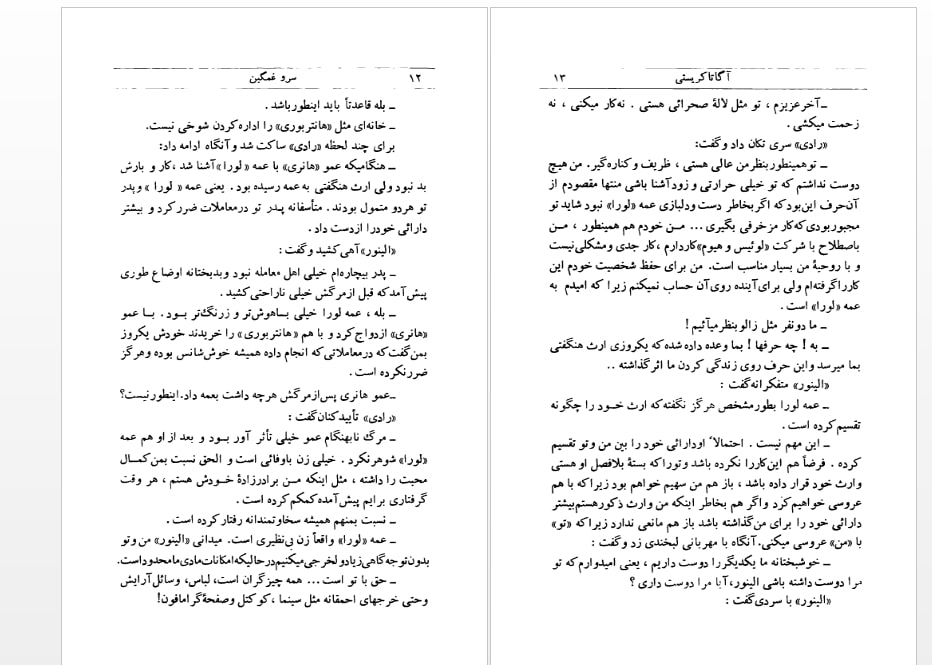 ۱۲ سرو غمگین
ــ بله قاعدتاً باید اینطور باشد .
ــ خانه‌ای مثل «هانتربوری» را اداره کردن شوخی نیست.
برای چند لحظه «رادی» ساکت شد و آنگاه ادامه داد:
ــ هنگامیکه عمو «هانری» با عمه « لورا» آشنا شد ،کار و بارش
بد نبود ولی ارث هنگفتی به عمه رسیده بود . یعنی عمه « لورا » و پدر
تو هردو متمول بودند . متأسفانه پدر تو در معاملات ضرر کرد و بیشتر
دارائی خود را از دست داد .
«الینور» آهی کشید و گفت :
ــ پدر بیچاره‌ام خیلی اهل معامله نبود و بدبختانه اوضاع طوری
پیش آمد که قبل از مرگش خیلی ناراحتی کشید .
ــ بله ، عمه لورا خیلی باهوش‌تر و زرنگ‌تر بود . با عمو
«هانری» ازدواج کرد و با هم «هانتربوری» را خریدند خودش یکروز
بمن گفت که در معاملاتی که انجام داده همیشه خوش‌شانس بوده و هرگز
ضرر نکرده است .
ــ عمو هانری پس از مرگش هرچه داشت بعمه داد. اینطور نیست؟
«رادی» تأیید کنان گفت :
ــ مرگ نابهنگام عمو خیلی تأثر آور بود و بعد از او هم عمه
«لورا» شوهر نکرد . خیلی زن باوفائی است و الحق نسبت بمن کمال
محبت را داشته ، مثل اینکه من برادرزادهٔ خودش هستم ، هر وقت
گرفتاری برایم پیش آمده کمکم کرده است .
ــ نسبت بمنهم همیشه سخاوتمندانه رفتار کرده است .
ــ عمه «لورا» واقعاً زن بی‌نظیری است. میدانی «الینور» من و تو
بدون توجه گاهی زیاد ولخرجی میکنیم در حالیکه امکانات مادی ما محدود است.
ــ حق با تو است ... همه چیز گران است، لباس، وسائل آرایش
وحتی خرجهای احمقانه مثل سینما ،کوکتل و صفحهٔ گرامافون!
آگاتا کریستی ۱۳
ــ آخر عزیزم ، تو مثل لالهٔ صحرائی هستی . نه کار میکنی ، نه
زحمت میکشی .
«رادی» سری تکان داد و گفت:
ــ تو همینطور بنظر من عالی هستی ، ظریف و کناره گیر. من هیچ
دوست نداشتم که تو خیلی حرارتی و زود آشنا باشی منتها مقصودم از
آن حرف این بود که اگر بخاطر دست و دلبازی عمه «لورا» نبود شاید تو
مجبور بودی که کار مزخرفی بگیری ... من خودم هم همینطور ، من
باصطلاح با شرکت «لوئیس و هیوم» کار دارم ،کار جدی و مشکلی نیست
و با روحیهٔ من بسیار مناسب است. من برای حفظ شخصیت خودم این
کار را گرفته‌ام ولی برای آینده روی آن حساب نمیکنم زیرا که امیدم به
عمه «لورا» است .
ــ ما دو نفر مثل زالو بنظر میآئیم !
ــ به ! چه حرفها ! بما وعده داده شده که یکروزی ارث هنگفتی
بما میرسد و این حرف روی زندگی کردن ما اثر گذاشته ..
«الینور» متفکرانه گفت :
ــ عمه لورا بطور مشخص هرگز نگفته که ارث خود را چگونه
تقسیم کرده است .
ــ این مهم نیست . احتمالاً او دارائی خود را بین من و تو تقسیم
کرده . فرضاً هم این کار را نکرده باشد و تو را که بستهٔ بلافصل او هستی
وارث خود قرار داده باشد ، باز هم من سهیم خواهم بود زیرا که با هم
عروسی خواهیم کرد و اگر هم بخاطر اینکه من وارث ذکور هستم بیشتر
دارائی خود را برای من گذاشته باشد باز هم مانعی ندارد زیرا که «تو»
با «من» عروسی میکنی. آنگاه با مهربانی لبخندی زد و گفت :
ــ خوشبختانه ما یکدیگر را دوست داریم ، یعنی امیدوارم که تو
مرا دوست داشته باشی الینور، آیا مرا دوست داری ؟
«الینور» با سردی گفت :